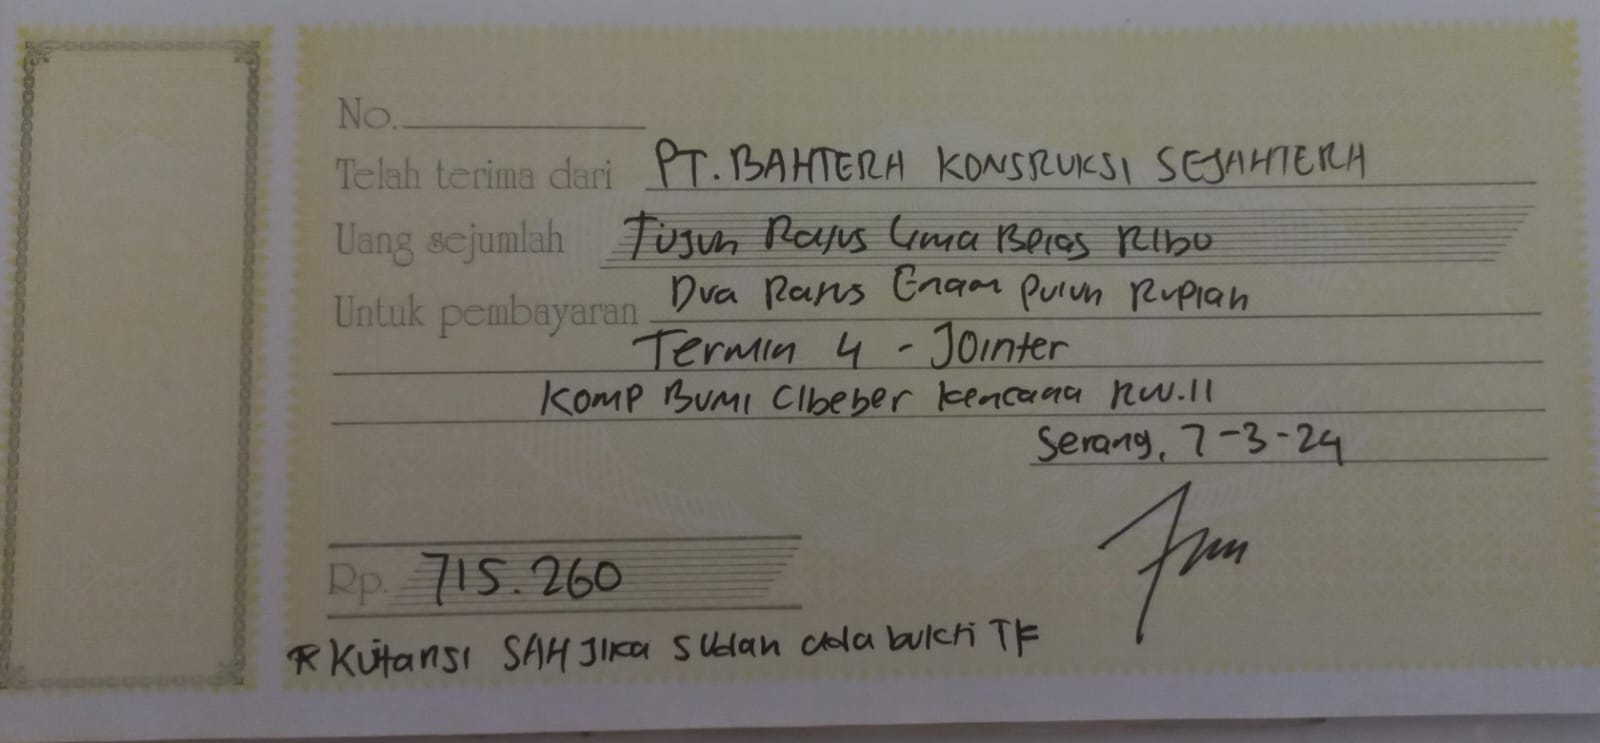 No.
Telah terima dari PT. BAHTERA KONSRUKSI SEJAHTERA
Uang sejumlah Tujuh Ratus Lima Belas Ribu
Dua Ratus Enam Puluh Rupiah
Untuk pembayaran
Termin 4 - Jointer
Komp Bumi Cibeber Kencana RW.11
Serang, 7-3-24
Rp. 715.260
* Kuitansi SAH Jika Sudah ada bukti TF